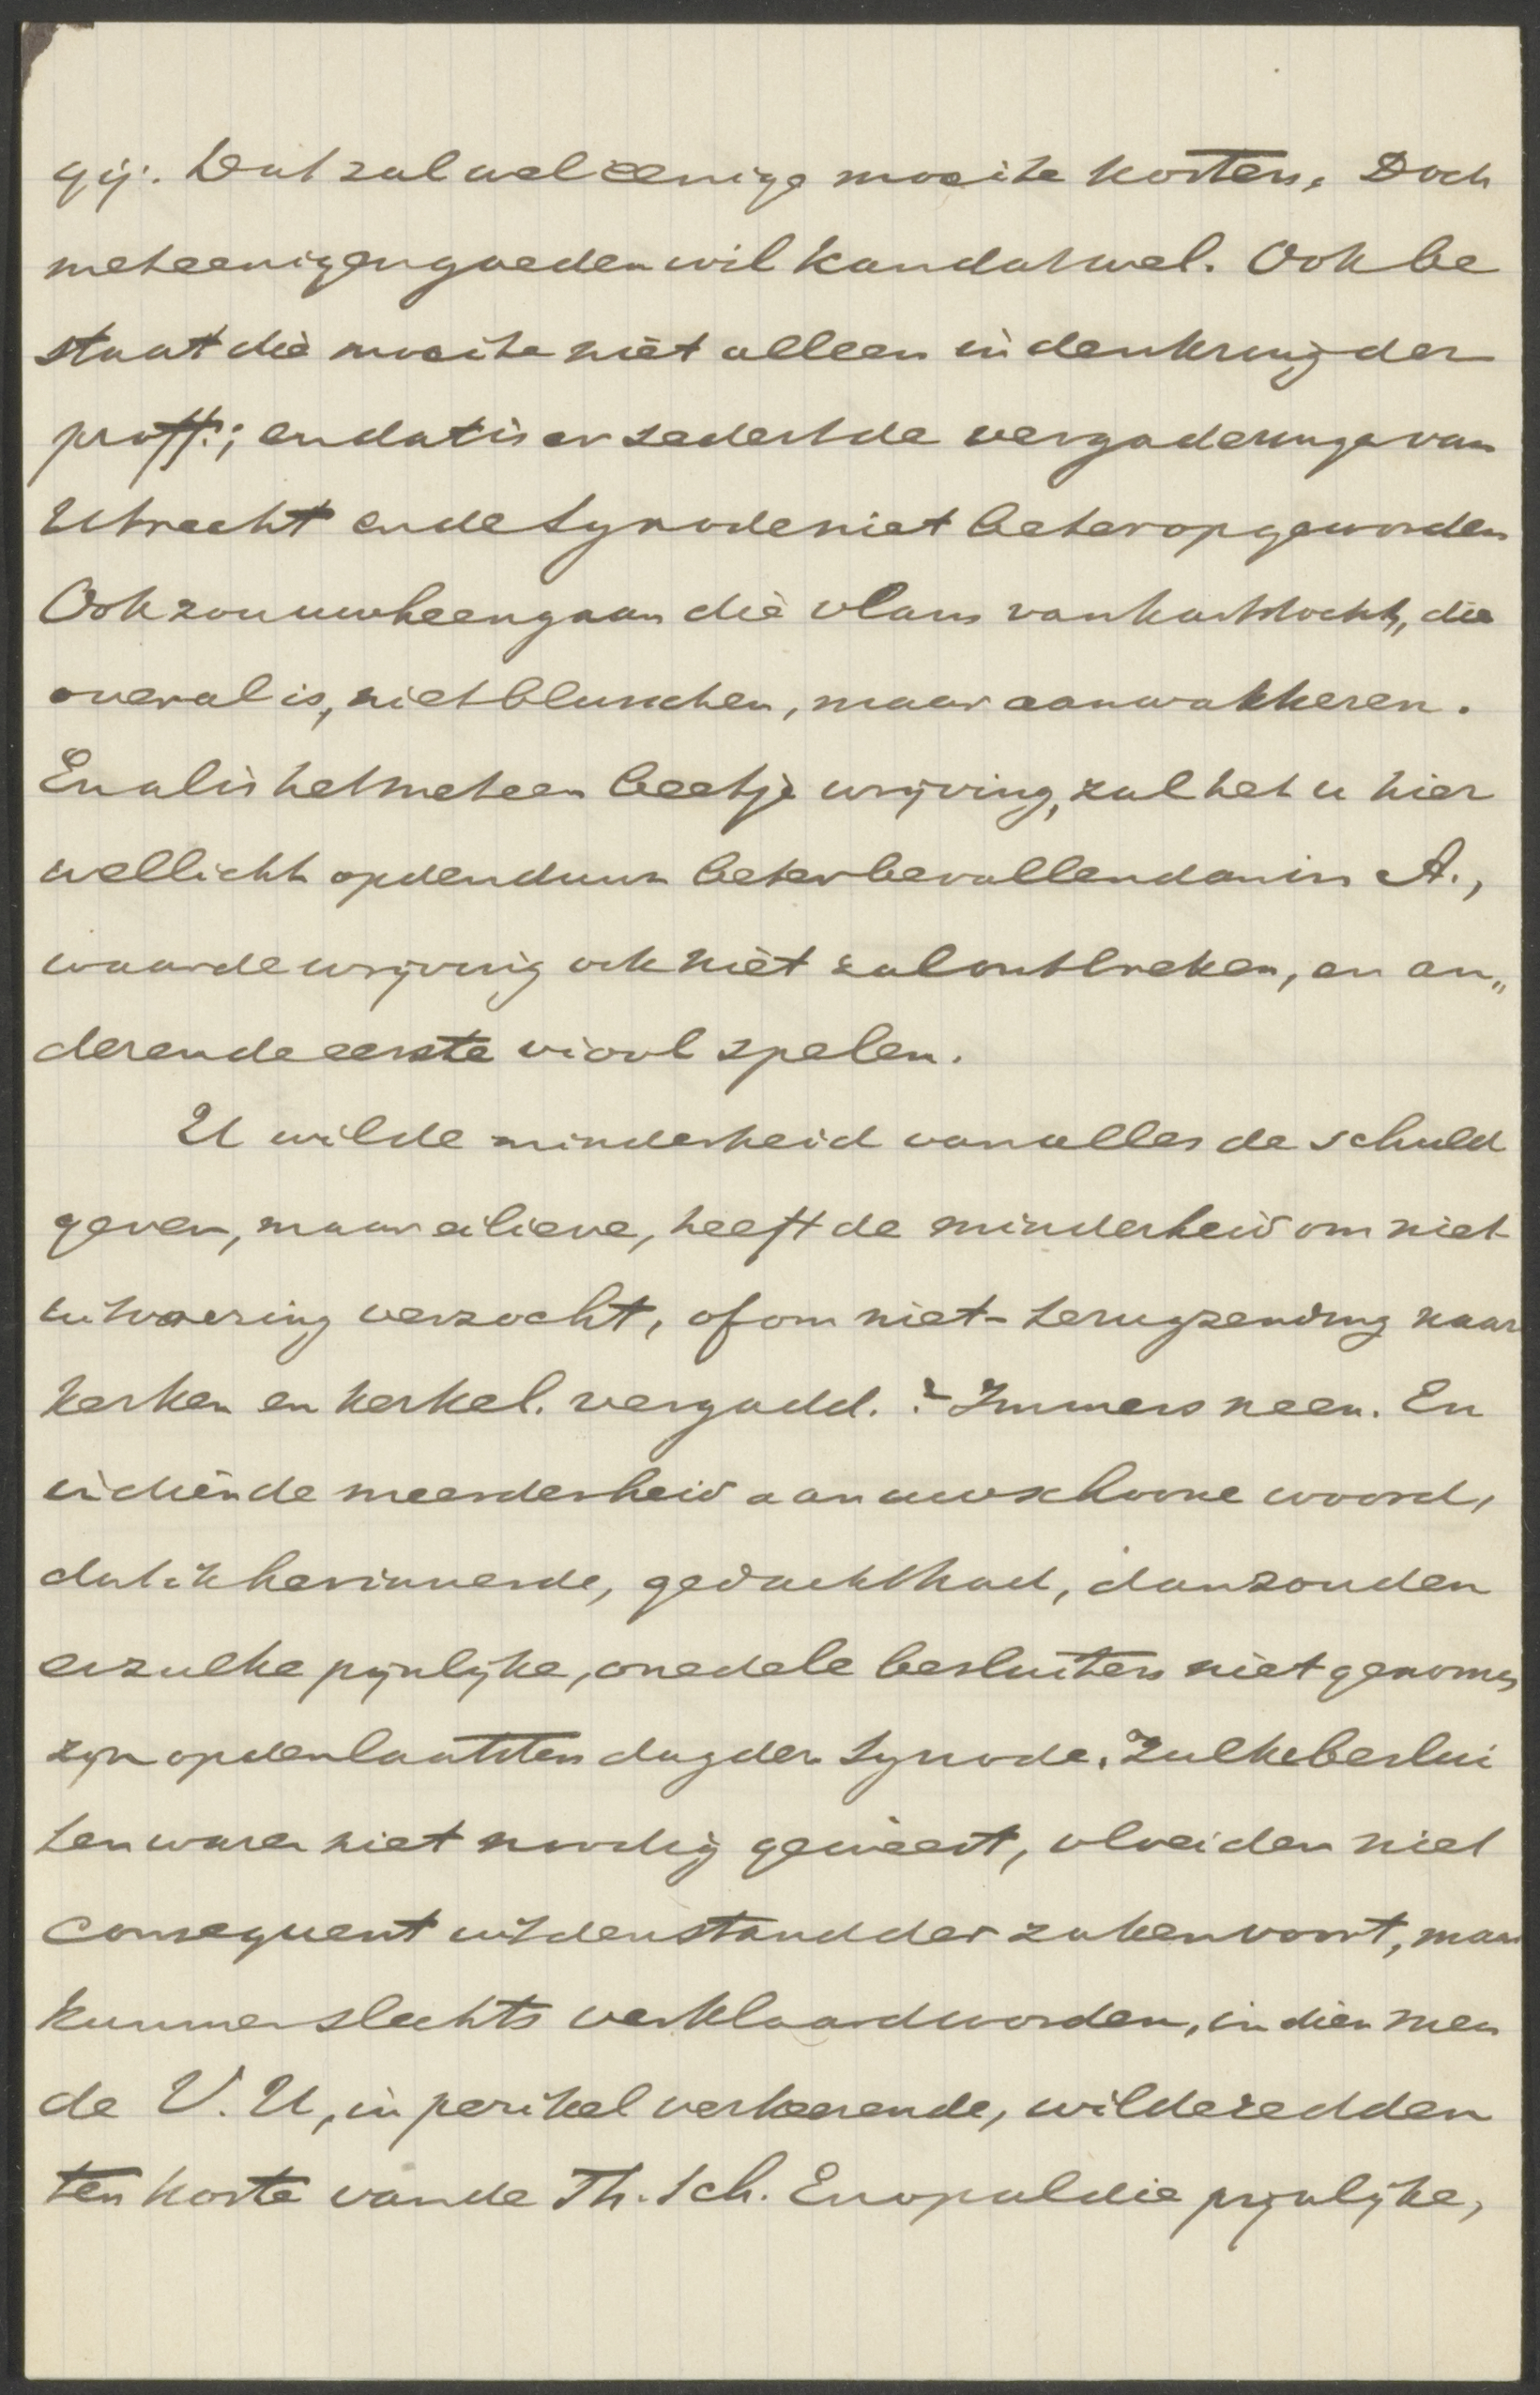 gij. Dat zal wel eenige moeite kosten. Doch
met eenigen goeden wil kan dat wel. Ook be
staat die moeite niet alleen in den kring der
proff.; en dat is er sedert de vergaderinge van
Utrecht en de Synode niet beter op geworden
Ook zou uw heengaan die vlam van hartstocht, die
overal is, niet blusschen, maar aanwakkeren.
En al is het met een beetje wrijving, zal het u hier
wellicht op den duur beter bevallen dan in A.,
waar de wrijving ook niet zal ontbreken, en an„
deren de eerste viool spelen.
U wilde minderheid van alles de schuld
geven, maar eilieve, heeft de minderheid om niet-
uitvoering verzocht, of om niet-terugzending naar
kerken en kerkel. vergadd.? Immers neen. En
indien de meerderheid aan uw schoone woord,
dat ik herinnerde, gedacht had, dan zouden
er zulke pijnlijke, onedele besluiten niet genomen
zijn op den laatsten dag der Synode. Zulke beslui
ten waren niet noodig geweest, vloeiden niet
consequent uit den stand der zaken voort, maar
kunnen slechts verklaard worden, indien men
de V.U, in perikel verkeerende, wilde redden
ten koste van de Th. Sch. En op al die pijnlijke,